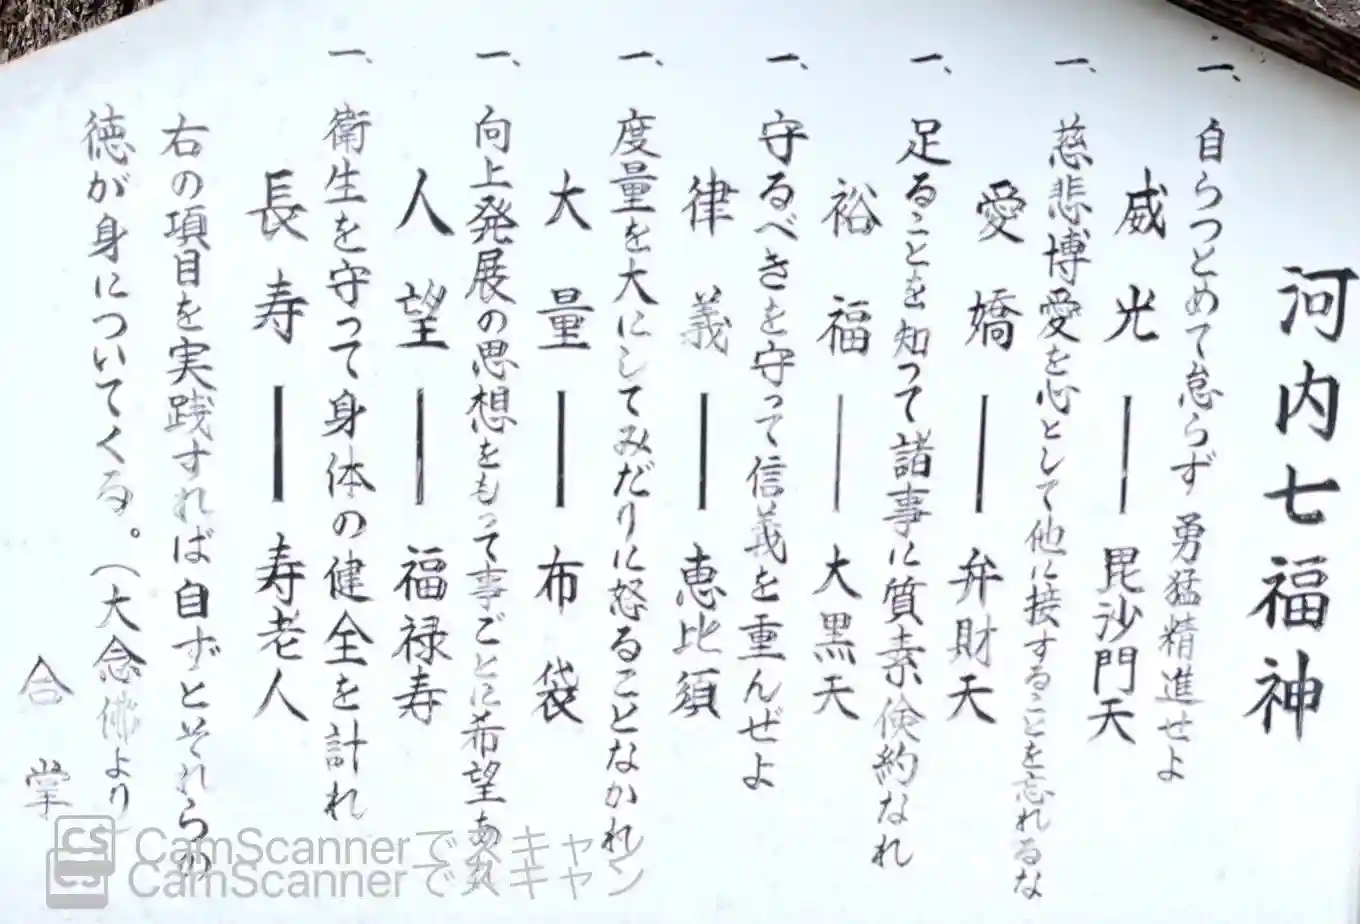 河内七福神
一、自らつとめて怠らず勇猛精進せよ
威光―毘沙門天
一、慈悲博愛を心として他に接することを忘れるな
愛嬌―弁財天
一、足ることを知って諸事に質素倹約なれ
裕福―大黒天
一、守るべきを守って信義を重んぜよ
律義―恵比須
一、度量を大にしてみだりに怒ることなかれ
大量―布袋
一、向上発展の思想をもって事ごとに希望あれ
人望―福禄寿
一、衛生を守って身体の健全を計れ
長寿―寿老人
右の項目を実践すれば自ずとそれらの
徳が身についてくる。(大念佛より)
合掌
CamScannerでスキャン
CamScannerでスキャン